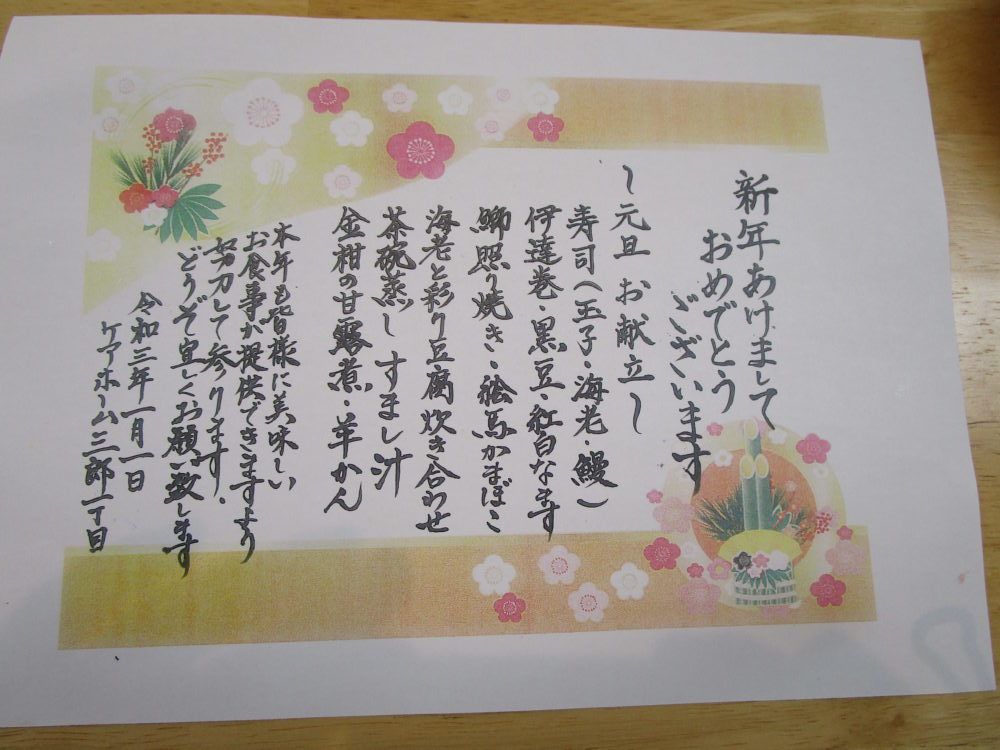 新年あけまして
おめでとう
ございます
～元旦 お献立～
寿司(玉子・海老・鰻)
伊達巻・黒豆・紅白なます
鰤照り焼き・絵馬かまぼこ
海老と彩り豆腐炊き合わせ
茶碗蒸し すまし汁
金柑の甘露煮・羊かん
本年も皆様に美味しい
お食事が提供できますよう
努力して参ります。
どうぞ宜しくお願い致します
令和三年一月一日
ケアホーム三郎丁目